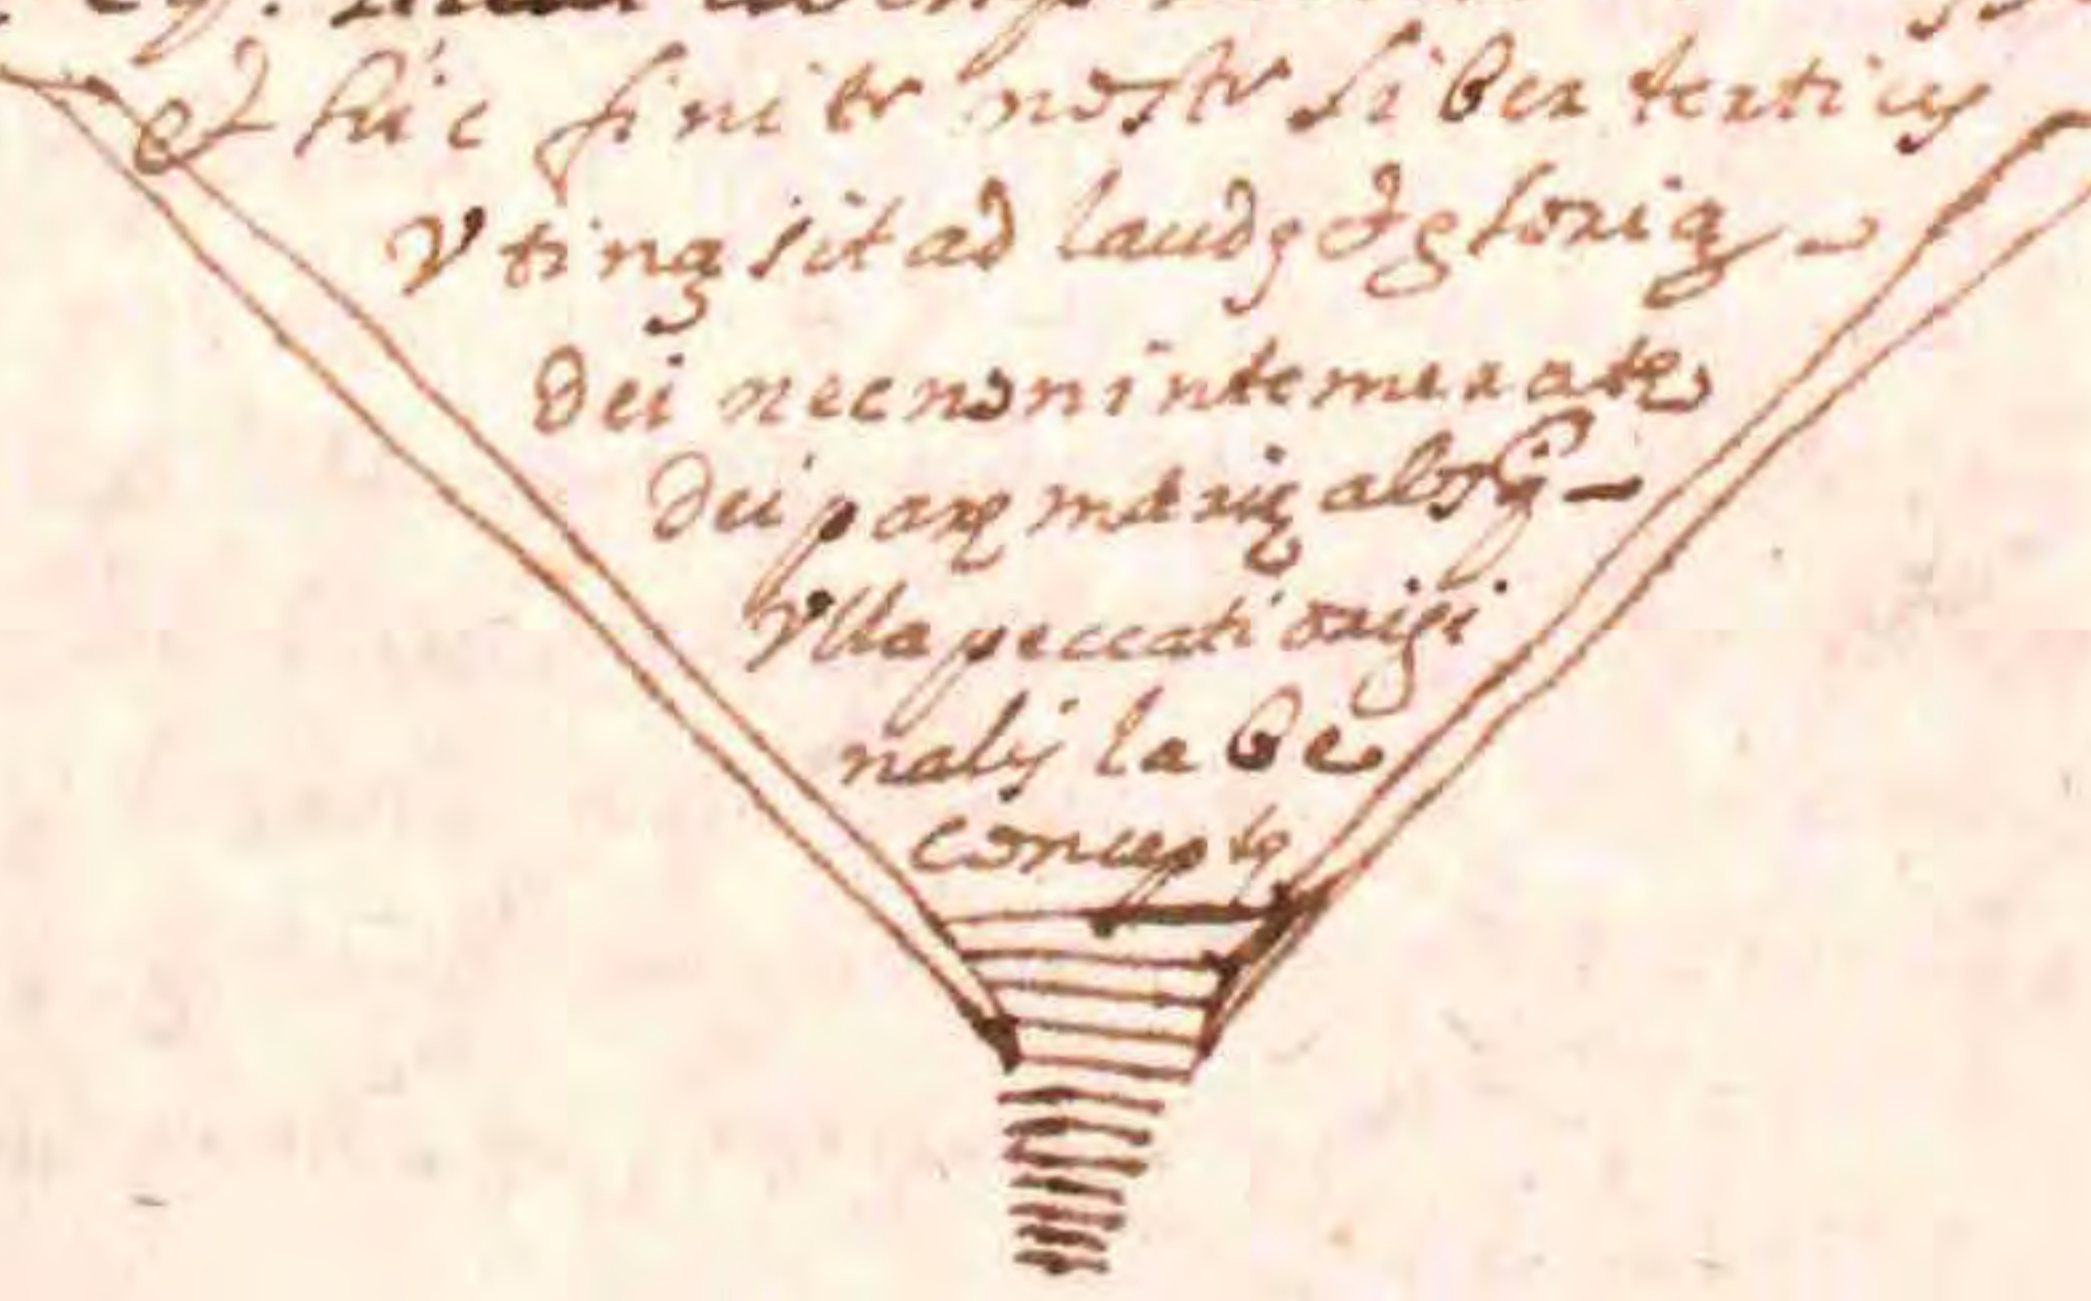 et hic finitr nostr liber tertius
Vtinã sit ad laudę & gloriã
Dei necnon intemeratę
Dei parę marię absq̃ —
Vlla peccati origi
nalis labe
conceptę